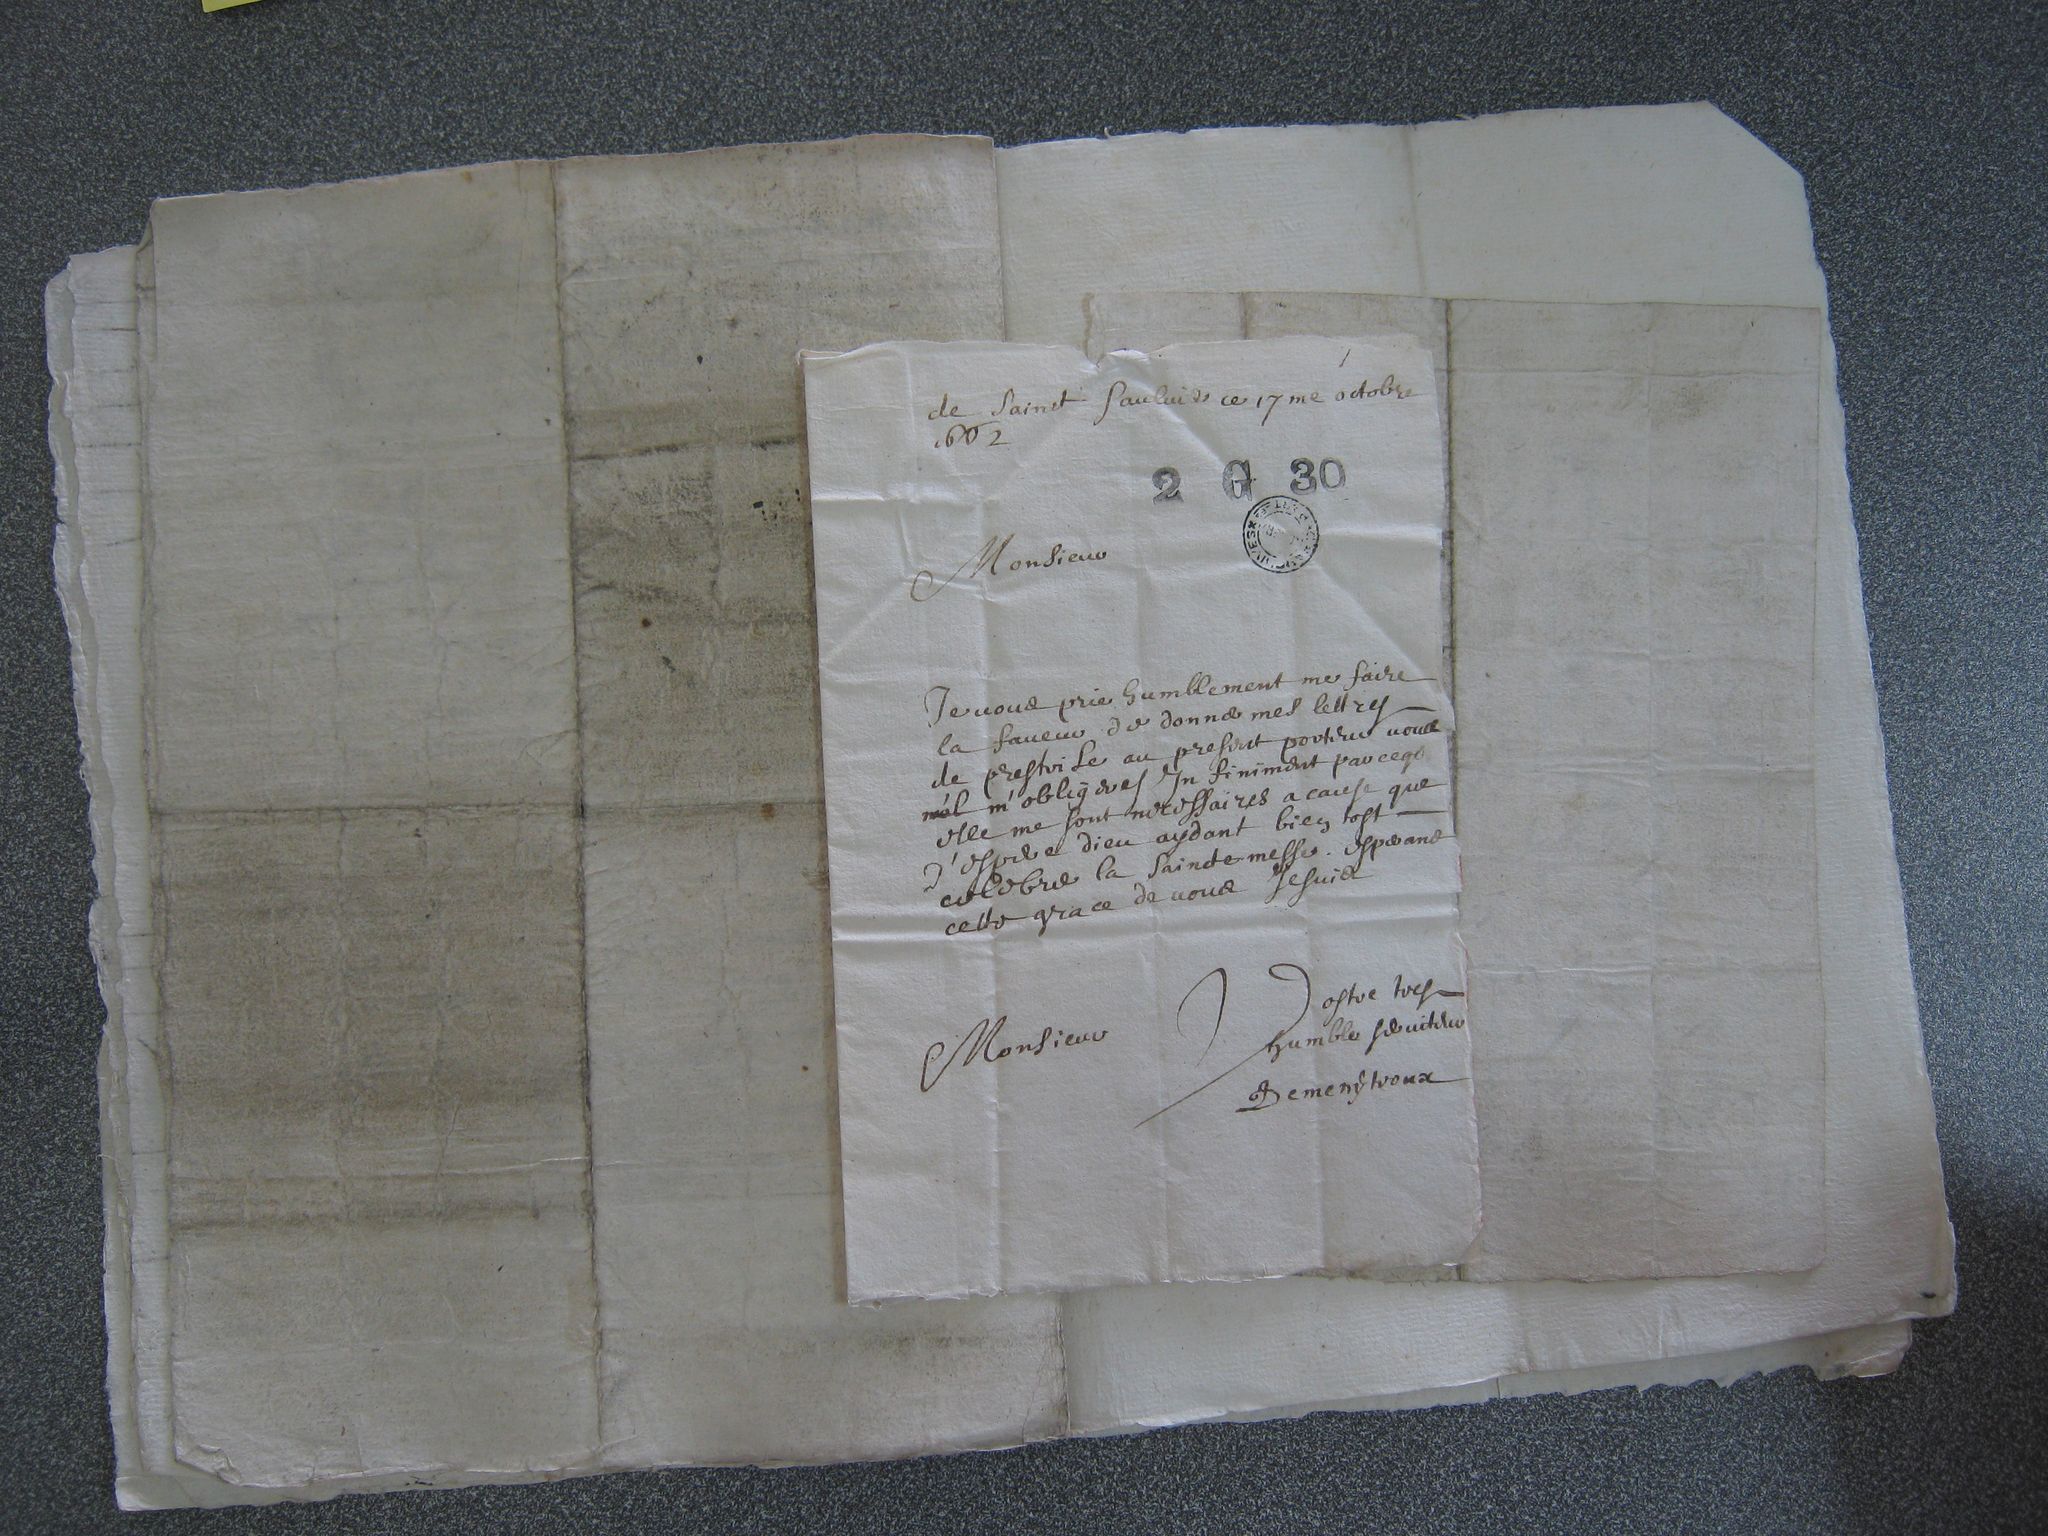 de Sainct Saulvie ce 17me octobre
1662
2 G 30
Monsieur
Je vous prie humblement me faire
la faveur de donner mes lettres
de prestrise au present porteur vous
m'obligeres Infiniment parceq
elle me sont necessaires a cause que
J'espere dieu aydant bien tost
celebrer la Saincte messe. esperant
cette grace de vous Je suis
Monsieur
Vostre tres
humble serviteur
Demenytroux